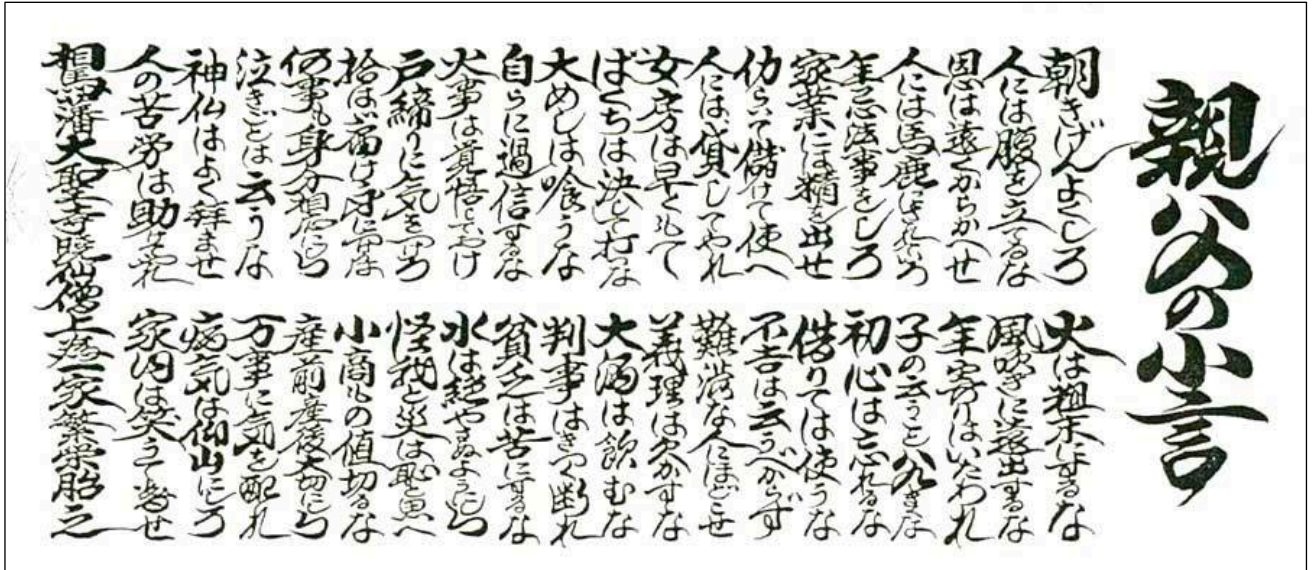 親父の小言
朝きげんよくしろ
人には腹を立てるな
恩は遠くからかへせ
人には馬鹿にされていろ
年忌法事をしろ
家業には精を出せ
仂らいて儲けて使へ
人には貸してやれ
女房は早くもて
ばくちは決して打つな
大めしは喰うな
自らに過信するな
火事は覚悟しておけ
戸締りに気をつけろ
拾はば届け身につけるな
何事も身分相応にしろ
泣きごとは云うな
神仏はよく拝ませ
人の苦労は助けてやれ
火は粗末にするな
風吹きに遠出するな
年寄りはいたわれ
子の云うこと八九きくな
初心は忘れるな
借りては使うな
不吉は云うべからず
難渋な人にほどこせ
義理は欠かすな
大酒は飲むな
判事はきつく断れ
貧乏は苦にするな
水は絶やさぬようにしろ
怪我と災は恥と思へ
小商もの値切るな
産前産後大切にしろ
万事に気を配れ
病気は仰山にしろ
家内は笑うて暮せ
相馬藩大聖寺暁仙僧上為一家繁栄胎之